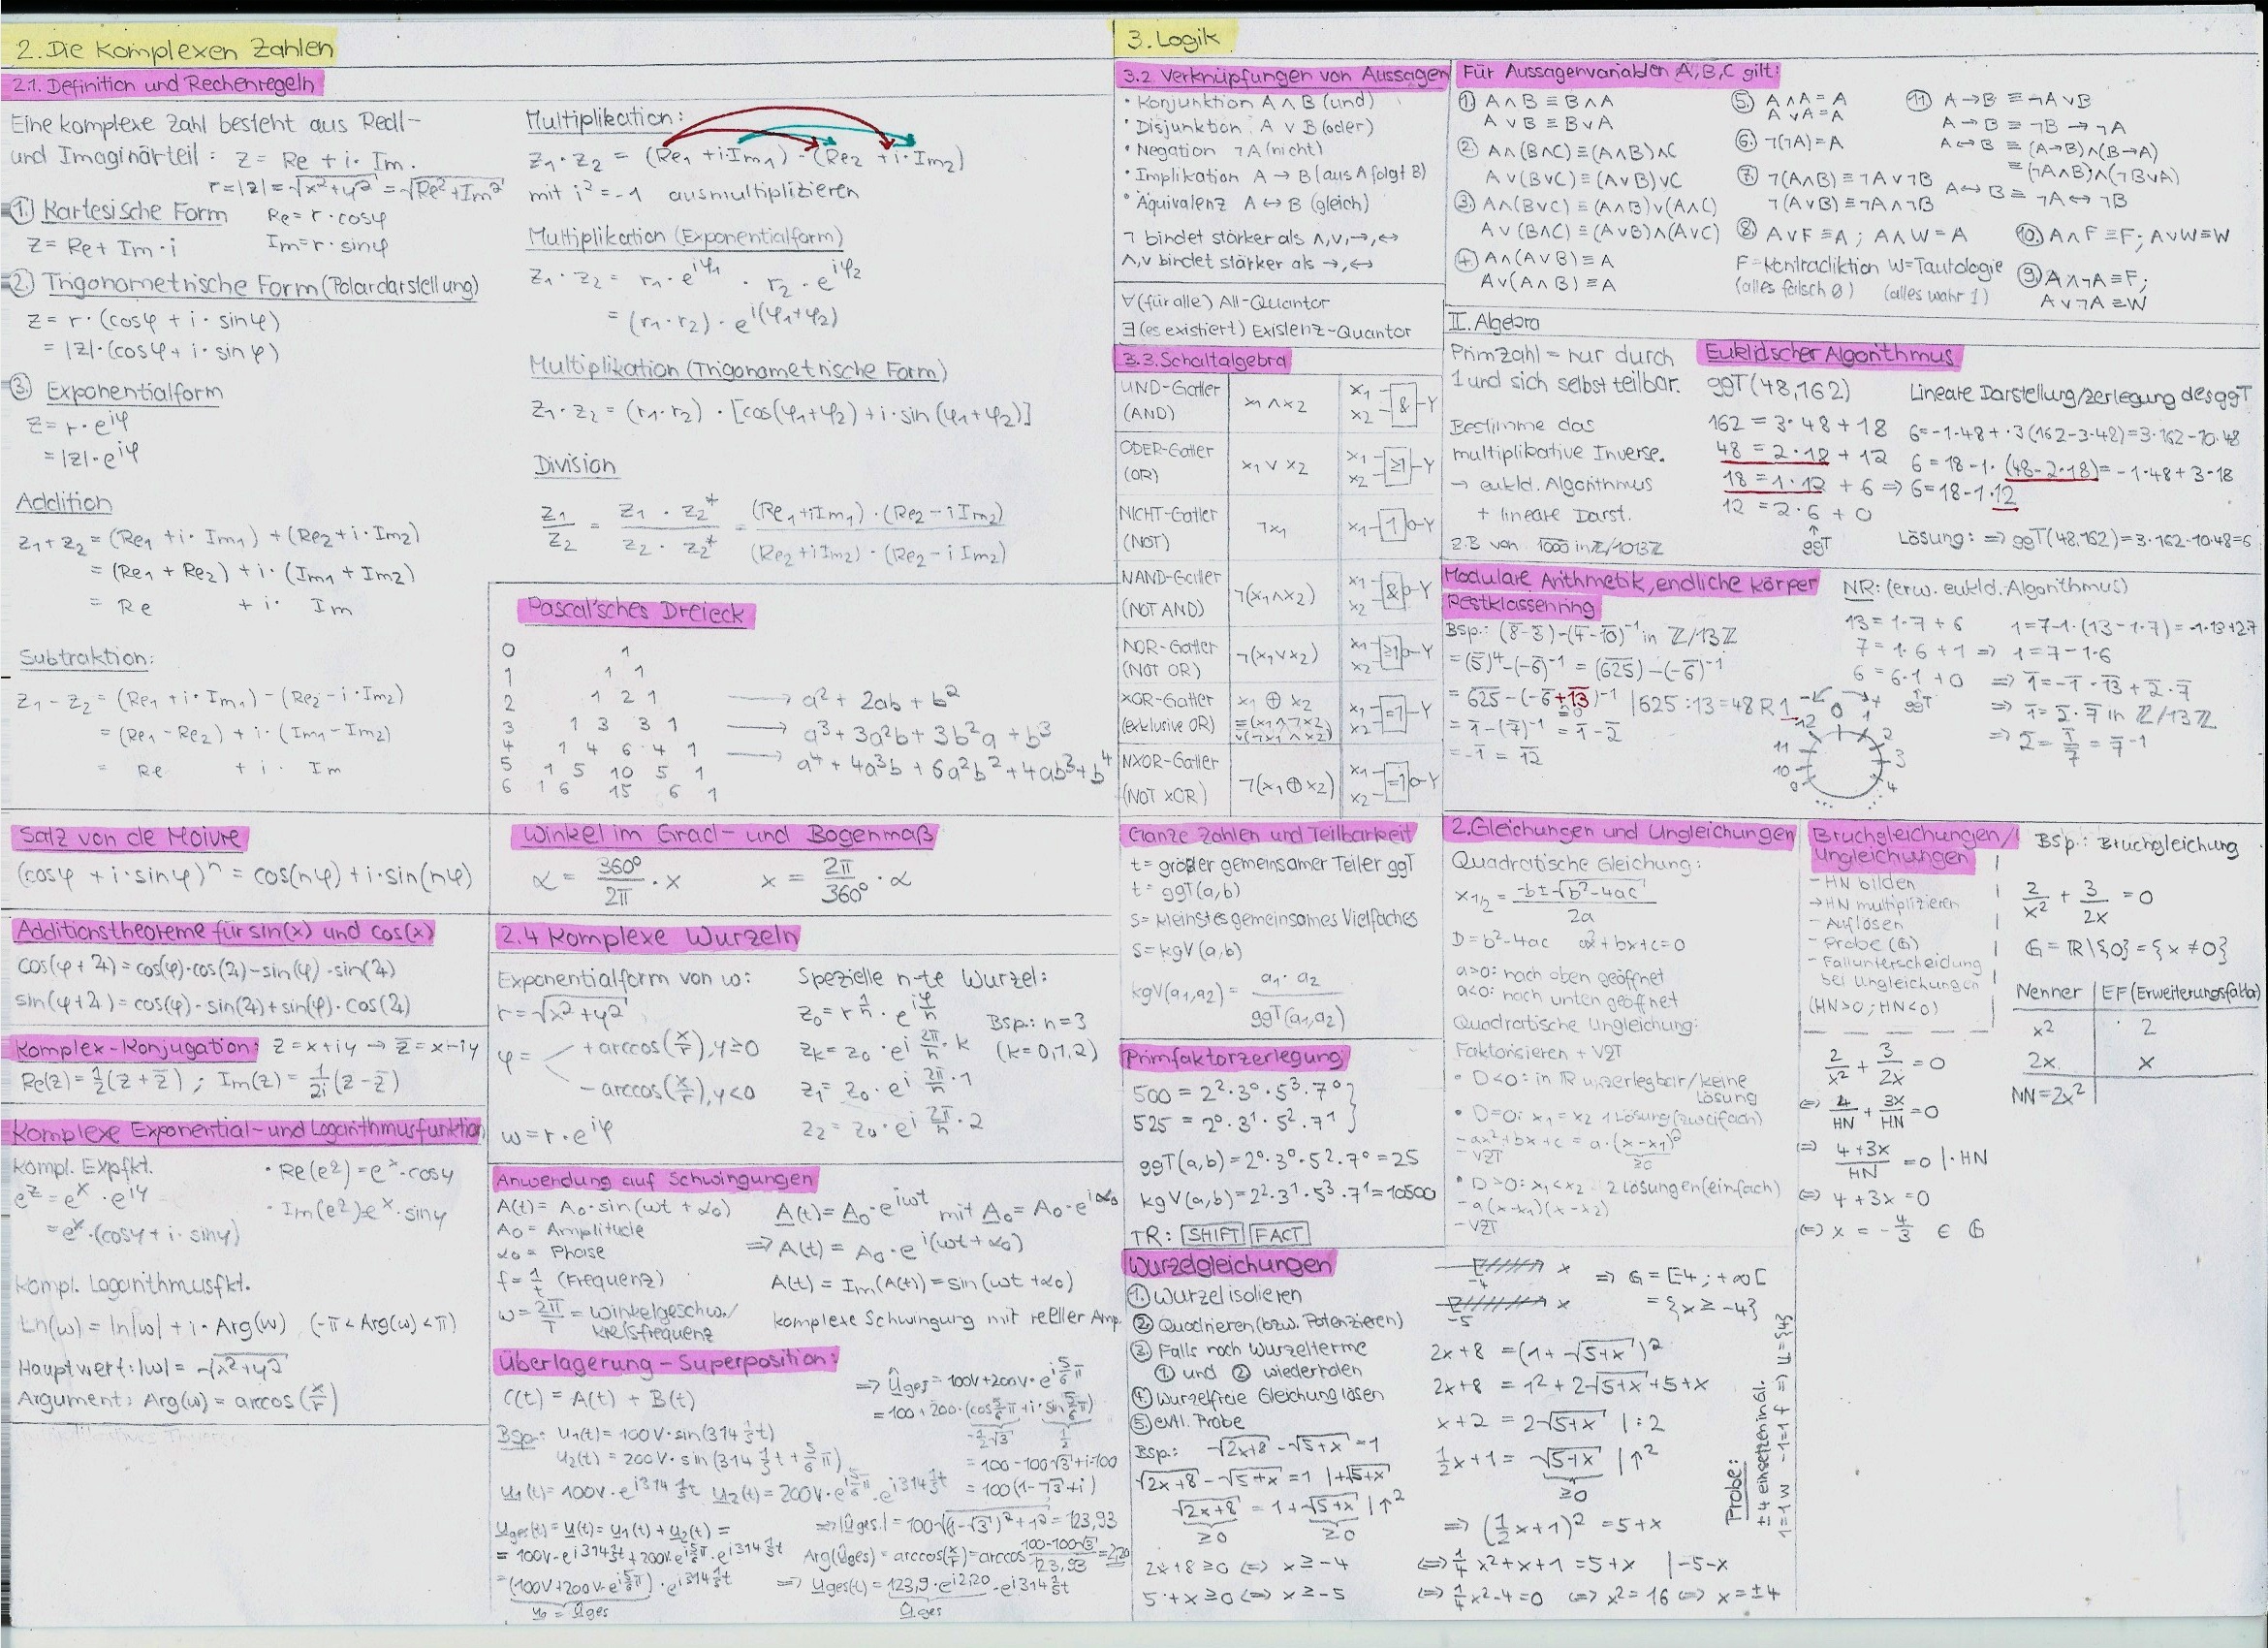 2. Die Komplexen Zahlen
2.1. Definition und Rechenregeln
Eine komplexe Zahl besteht aus Real-
und Imaginärteil: z = Re + i · Im.
r=|z|=√(x²+y²) = √(Re²+Im²)
① Kartesische Form
Re = r · cosφ
z = Re + Im · i
Im = r · sinφ
② Trigonometrische Form (Polardarstellung)
z = r · (cosφ + i · sinφ)
= |z| · (cosφ + i · sinφ)
③ Exponentialform
z = r · e^iφ
= |z| · e^iφ
Addition
z₁ + z₂ = (Re₁ + i · Im₁) + (Re₂ + i · Im₂)
= (Re₁ + Re₂) + i · (Im₁ + Im₂)
= Re + i · Im
Subtraktion:
z₁ − z₂ = (Re₁ + i · Im₁) − (Re₂ − i · Im₂)
= (Re₁ − Re₂) + i · (Im₁ − Im₂)
= Re + i · Im
Multiplikation:
z₁ · z₂ = (Re₁ + i·Im₁) · (Re₂ + i·Im₂)
mit i² = −1 ausmultiplizieren
Multiplikation (Exponentialform)
z₁ · z₂ = r₁ · e^iφ₁ · r₂ · e^iφ₂
= (r₁ · r₂) · e^i(φ₁+φ₂)
Multiplikation (Trigonometrische Form)
z₁ · z₂ = (r₁ · r₂) · [cos(φ₁+φ₂) + i · sin(φ₁+φ₂)]
Division
z₁/z₂ = (z₁ · z₂*)/(z₂ · z₂*) = ((Re₁+iIm₁) · (Re₂ − iIm₂))/((Re₂+iIm₂) · (Re₂ − iIm₂))
Pascal'sches Dreieck
0 1
1 1 1
2 1 2 1 → a² + 2ab + b²
3 1 3 3 1 → a³ + 3a²b + 3b²a + b³
4 1 4 6 4 1 → a⁴ + 4a³b + 6a²b² + 4ab³ + b⁴
5 1 5 10 5 1
6 1 6 15 6 1
Satz von de Moivre
(cosφ + i · sinφ)ⁿ = cos(nφ) + i · sin(nφ)
Winkel im Grad- und Bogenmaß
α = 360°/2π · x x = 2π/360° · α
Additionstheoreme für sin(x) und cos(x)
cos(φ+2) = cos(φ)·cos(2) − sin(φ)·sin(2)
sin(φ+2) = cos(φ)·sin(2) + sin(φ)·cos(2)
Komplex-Konjugation: z = x+iy → z̄ = x−iy
Re(z) = ½(z + z̄) ; Im(z) = 1/2i (z − z̄)
Komplexe Exponential- und Logarithmusfunktion
Kompl. Expfkt.
• Re(e^z) = e^x · cosy
e^z = e^x · e^iy
• Im(e^z) = e^x · siny
= e^x · (cosy + i · siny)
Kompl. Logarithmusfkt.
Ln(w) = ln|w| + i · Arg(w) (−π < Arg(w) < π)
Hauptwert: |w| = √(x²+y²)
Argument: Arg(w) = arccos(x/r)
2.4 Komplexe Wurzeln
Exponentialform von w:
r = √(x²+y²)
φ =
+arccos(x/r), y≥0
−arccos(x/r), y<0
w = r · e^iφ
Spezielle n-te Wurzel:
z₀ = r^(1/n) · e^(iφ/n)
Bsp.: n=3
z_k = z₀ · e^(i 2π/n · k)
(k=0,1,2)
z₁ = z₀ · e^(i 2π/n · 1)
z₂ = z₀ · e^(i 2π/n · 2)
Anwendung auf Schwingungen
A(t) = A₀ · sin(ωt + α₀)
A₀ = Amplitude
α₀ = Phase
f = 1/t (Frequenz)
ω = 2π/T = Winkelgeschw./
Kreisfrequenz
A(t) = A₀ · e^iωt mit A₀ = A₀ · e^iα₀
⇒ A(t) = A₀ · e^i(ωt+α₀)
A(t) = Im(A(t)) = sin(ωt+α₀)
komplexe Schwingung mit reeller Amp.
Überlagerung - Superposition:
C(t) = A(t) + B(t)
Bsp.: u₁(t) = 100V · sin(314 1/s t)
u₂(t) = 200V · sin(314 1/s t + 5/6 π)
u₁(t) = 100V · e^(i314 1/s t) u₂(t) = 200V · e^(i 5/6 π) · e^(i314 1/s t)
uges(t) = u(t) = u₁(t) + u₂(t) =
= 100V · e^(i314 1/s t) + 200V · e^(i 5/6 π) · e^(i314 1/s t)
= (100V + 200V · e^(i 5/6 π)) · e^(i314 1/s t)
u₀ = ûges
⇒ ûges = 100V + 200V · e^(i 5/6 π)
= 100 + 200 · (cos 5/6 π + i · sin 5/6 π)
−½√3 ½
= 100 − 100√3 + i·100
= 100(1−√3+i)
⇒ |ûges.| = 100√((1−√3)²+1²) = 123,93
Arg(ûges) = arccos(x/r) = arccos (100−100√3)/123,93 = 2,20
⇒ uges(t) = 123,9 · e^i2,20 · e^(i314 1/s t)
ûges
3. Logik
3.2 Verknüpfungen von Aussagen
• Konjunktion A ∧ B (und)
• Disjunktion A ∨ B (oder)
• Negation ¬A (nicht)
• Implikation A → B (aus A folgt B)
• Äquivalenz A ↔ B (gleich)
¬ bindet stärker als ∧,∨,→,↔
∧,∨ bindet stärker als →,↔
∀ (für alle) All-Quantor
∃ (es existiert) Existenz-Quantor
Für Aussagenvariablen A, B, C gilt:
① A∧B ≡ B∧A
A∨B ≡ B∨A
② A∧(B∧C) ≡ (A∧B)∧C
A∨(B∨C) ≡ (A∨B)∨C
③ A∧(B∨C) ≡ (A∧B)∨(A∧C)
A∨(B∧C) ≡ (A∨B)∧(A∨C)
④ A∧(A∨B) ≡ A
A∨(A∧B) ≡ A
⑤ A∧A = A
A∨A = A
⑥ ¬(¬A) = A
⑦ ¬(A∧B) ≡ ¬A∨¬B
¬(A∨B) ≡ ¬A∧¬B
⑧ A∨F ≡ A ; A∧W = A
F = Kontradiktion W = Tautologie
(alles falsch 0) (alles wahr 1)
⑪ A→B ≡ ¬A∨B
A→B ≡ ¬B→¬A
A↔B ≡ (A→B)∧(B→A)
≡ (¬A∧B)∧(¬B∨A)
A↔B ≡ ¬A↔¬B
⑩ A∧F ≡ F; A∨W ≡ W
⑨ A∧¬A ≡ F;
A∨¬A ≡ W
3.3. Schaltalgebra
UND-Gatter (AND) x₁∧x₂ x₁ x₂ & Y
ODER-Gatter (OR) x₁∨x₂ x₁ x₂ ≥1 Y
NICHT-Gatter (NOT) ¬x₁ x₁ 1 Y
NAND-Gatter (NOT AND) ¬(x₁∧x₂) x₁ x₂ & Y
NOR-Gatter (NOT OR) ¬(x₁∨x₂) x₁ x₂ ≥1 Y
XOR-Gatter (exklusive OR) x₁ ⊕ x₂ ≡(x₁∧¬x₂) ∨(¬x₁∧x₂) x₁ x₂ =1 Y
NXOR-Gatter (NOT XOR) ¬(x₁⊕x₂) x₁ x₂ =1 Y
II. Algebra
Primzahl = nur durch
1 und sich selbst teilbar.
Bestimme das
multiplikative Inverse.
→ eukld. Algorithmus
+ lineare Darst.
z.B von 1000 in ℤ/1013ℤ
Euklidscher Algorithmus
ggT(48,162)
162 = 3·48 + 18
48 = 2·18 + 12
18 = 1·12 + 6 ⇒ 6=18−1·12
12 = 2·6 + 0
ggT
Lineare Darstellung/Zerlegung des ggT
6=−1·48+·3(162−3·48)=3·162−10·48
6 = 18−1·(48−2·18)=−1·48+3·18
Lösung: ⇒ ggT(48,162)=3·162−10·48=6
Modulare Arithmetik, endliche Körper
Restklassenring
Bsp.: (8̄−3̄)−(4̄−1̄0̄)⁻¹ in ℤ/13ℤ
= (5̄)⁴−(−6̄)⁻¹ = (625)−(−6̄)⁻¹
= 625−(−6+13)⁻¹ | 625:13=48 R 1
=0
= 1̄−(7̄)⁻¹ = 1̄−2̄
= −1̄ = 1̄2̄
NR: (erw. eukld. Algorithmus)
13 = 1·7 + 6
7 = 1·6 + 1 ⇒ 1=7−1·6
6 = 6·1 + 0
ggT
1=7−1·(13−1·7) = −1·13+2·7
⇒ 1̄=−1̄·1̄3̄+2̄·7̄
⇒ 1̄=2̄·7̄ in ℤ/13ℤ
⇒ 2̄ = 1̄/7̄ = 7̄⁻¹
− +
0 1 2 3 4 ... 9 10 11 12
Ganze Zahlen und Teilbarkeit
t = größter gemeinsamer Teiler ggT
t = ggT(a,b)
s = kleinstes gemeinsames Vielfaches
s = kgV(a,b)
kgV(a₁,a₂) = (a₁ · a₂)/ggT(a₁,a₂)
Primfaktorzerlegung
500 = 2²·3⁰·5³·7⁰
525 = 2⁰·3¹·5²·7¹
ggT(a,b) = 2⁰·3⁰·5²·7⁰ = 25
kgV(a,b) = 2²·3¹·5³·7¹ = 10500
TR: SHIFT FACT
Wurzelgleichungen
① Wurzel isolieren
② Quadrieren (bzw. Potenzieren)
③ Falls noch Wurzelterme
① und ② wiederholen
④ Wurzelfreie Gleichung lösen
⑤ evtl. Probe
Bsp.: √(2x+8) − √(5+x) = 1
√(2x+8) − √(5+x) = 1 | +√(5+x)
√(2x+8) = 1+√(5+x) | ↑²
≥0 ≥0
2x+8 ≥ 0 ⇔ x ≥ −4
5+x ≥ 0 ⇔ x ≥ −5
2. Gleichungen und Ungleichungen
Quadratische Gleichung:
x₁/₂ = (−b±√(b²−4ac))/2a
D=b²−4ac ax²+bx+c=0
a>0: nach oben geöffnet
a<0: nach unten geöffnet
Quadratische Ungleichung:
Faktorisieren + VZT
• D<0: in ℝ unzerlegbar/keine
Lösung
• D=0: x₁=x₂ 1 Lösung (zweifach)
− ax²+bx+c = a·(x−x₁)²
≥0
− VZT
• D>0: x₁<x₂ 2 Lösungen (einfach)
− a(x−x₁)(x−x₂)
− VZT
−4 x ⇒ 𝔾 = [−4; +∞[
−5 x = {x ≥ −4}
2x+8 = (1+√(5+x))²
2x+8 = 1²+2√(5+x)+5+x
x+2 = 2√(5+x) | :2
½x+1 = √(5+x) | ↑²
≥0
⇒ (½x+1)² = 5+x
⇔ ¼x²+x+1 = 5+x | −5−x
⇔ ¼x²−4=0 ⇔ x²=16 ⇔ x=±4
Probe:
±4 einsetzen in Gl.
1=1 w −1=1 f ⇒ 𝕃={4}
Bruchgleichungen/
Ungleichungen
− HN bilden
→ HN multiplizieren
− Auflösen
− Probe (𝔾)
− Fallunterscheidung
bei Ungleichungen
(HN>0; HN<0)
Bsp.: Bruchgleichung
2/x² + 3/2x = 0
𝔾 = ℝ\{0} = {x ≠ 0}
Nenner EF (Erweiterungsfaktor)
x² 2
2x x
NN=2x²
2/x² + 3/2x = 0
⇔ 4/HN + 3x/HN = 0
⇒ (4+3x)/HN = 0 | ·HN
⇔ 4+3x = 0
⇔ x = −4/3 ∈ 𝔾